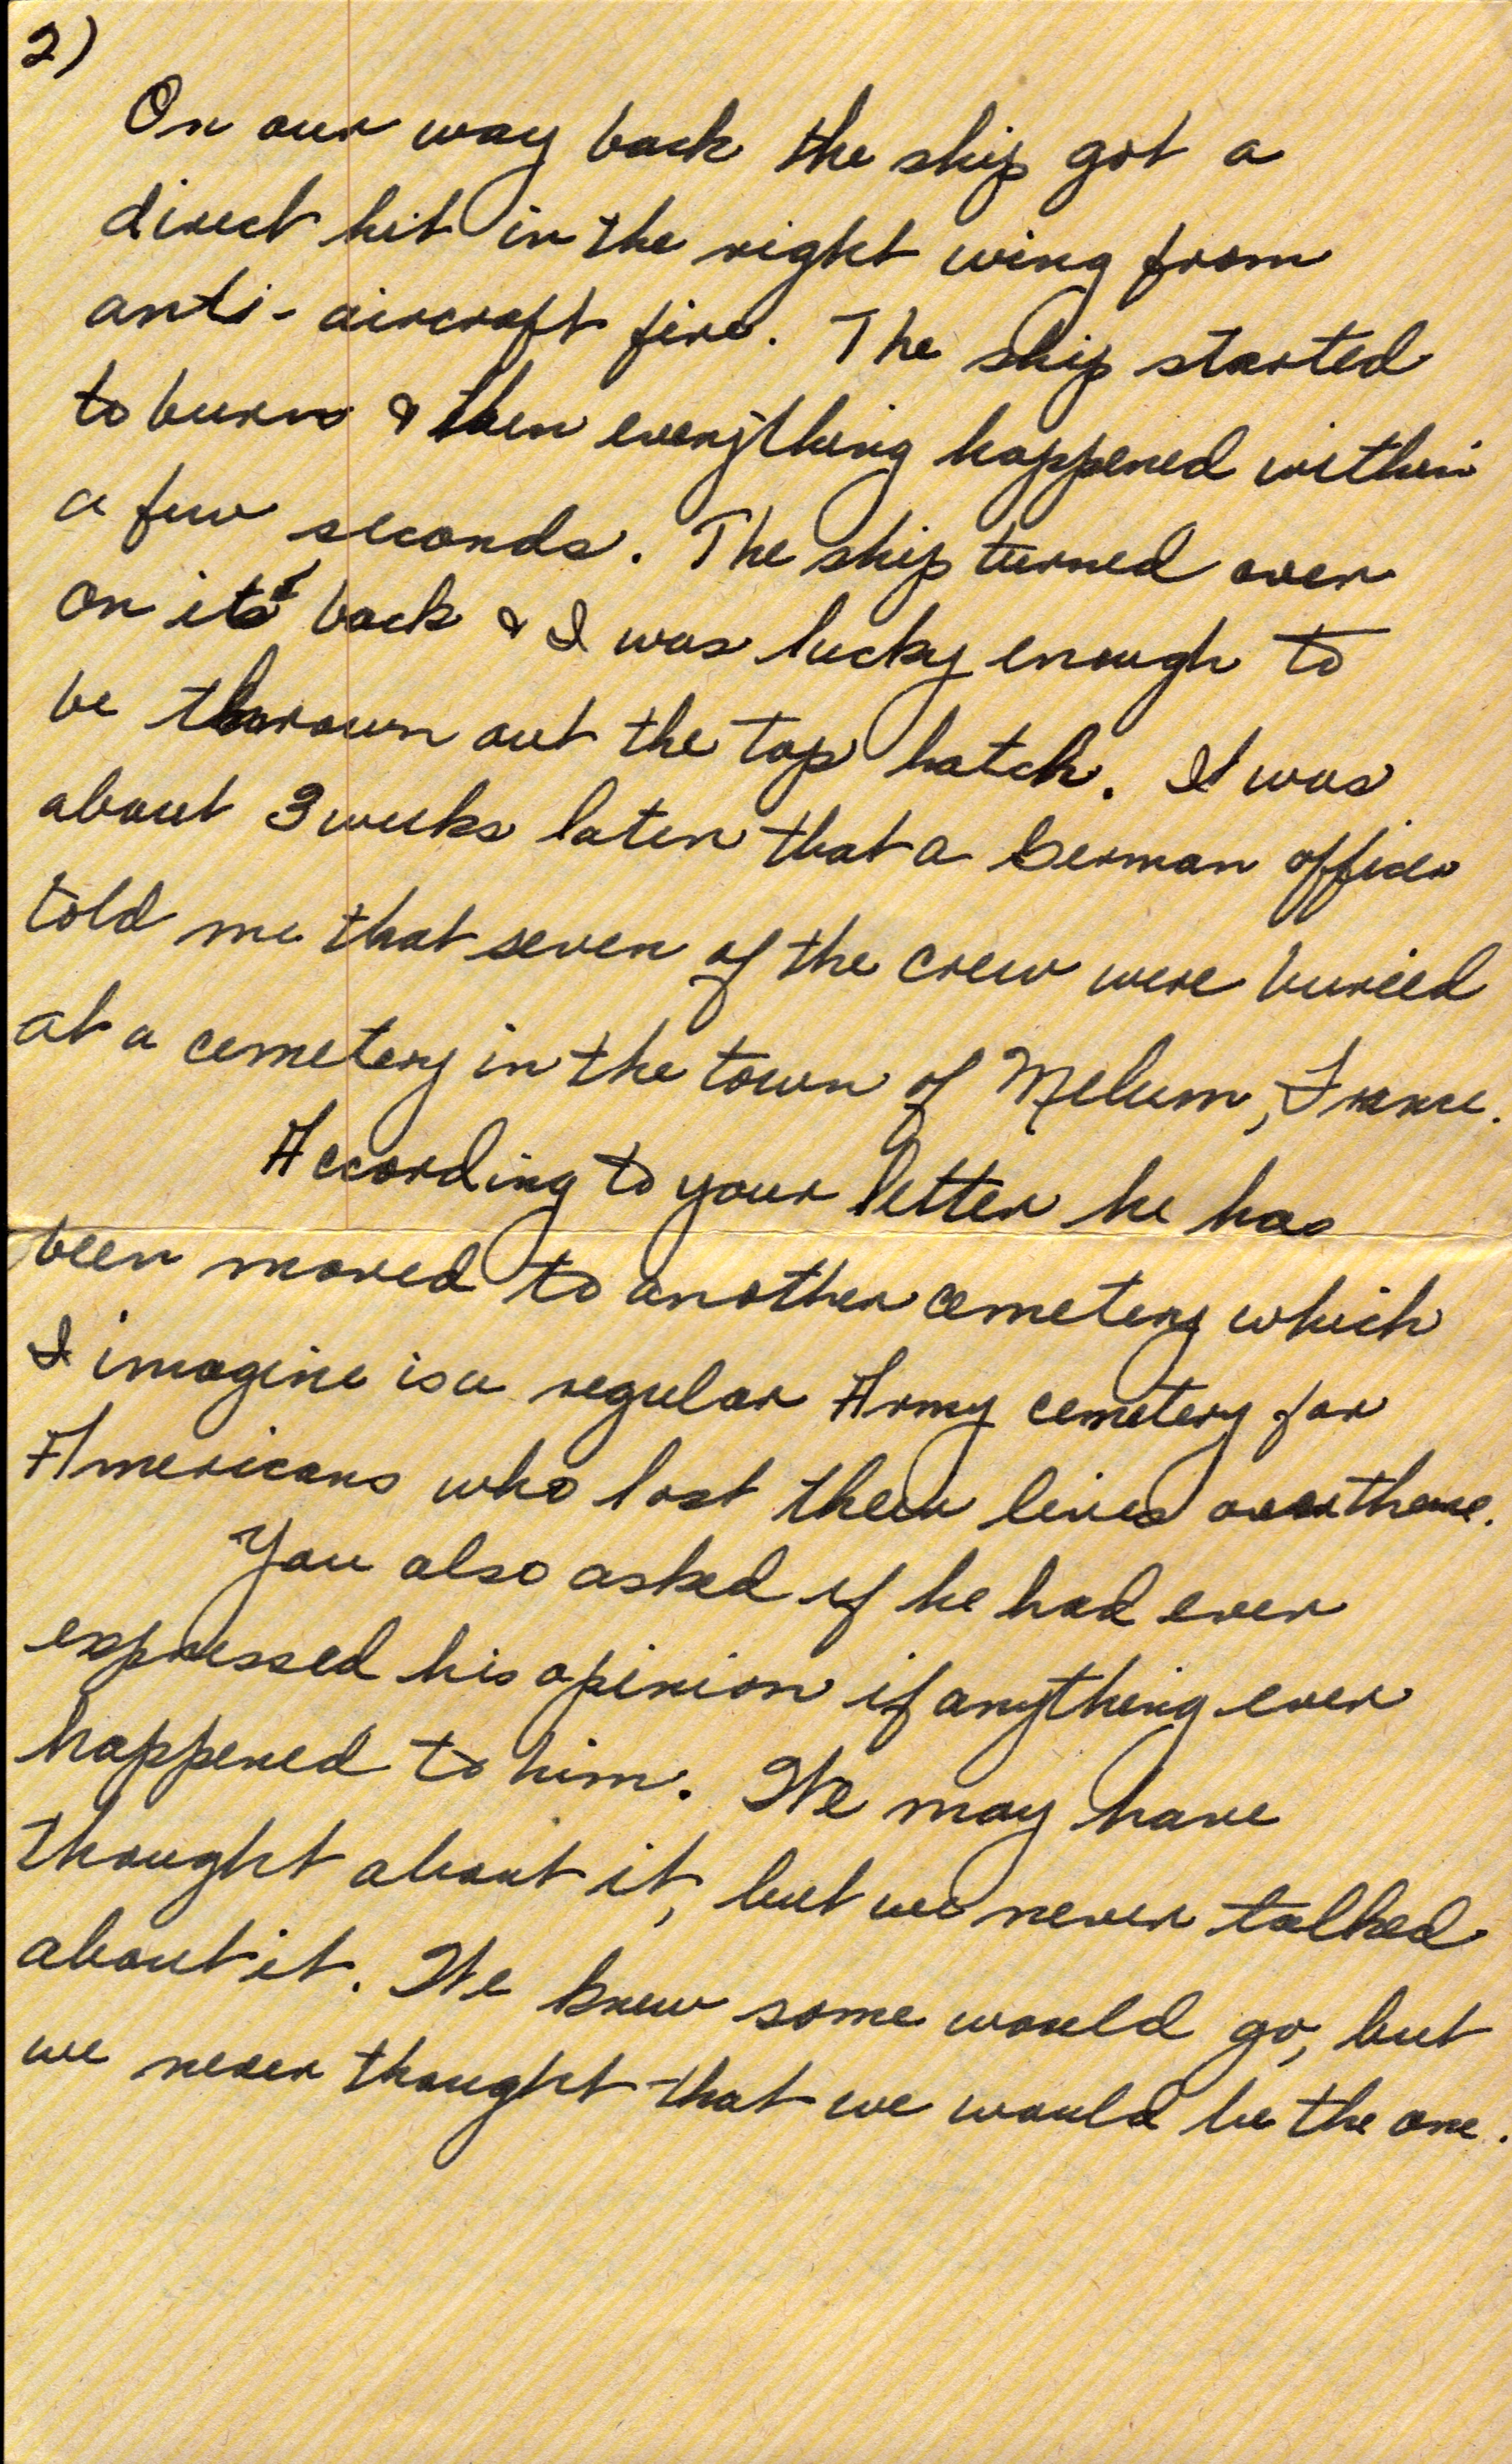 2)
On our way back the ship got a
direct hit in the right wing from
anti-aircraft fire. The ship started
to burn & then everything happened within
a few seconds. The ship turned over
on it's back & I was lucky enough to
be thrown out the top hatch. It was
about 3 weeks later that a German officer
told me that seven of the crew were buried
at a cemetery in the town of Melum, France.
According to your letter he has
been moved to another cemetery which
I imagine is a regular Army cemetery for
Americans who lost their lives over there.
You also asked if he had ever
expressed his opinion if anything ever
happened to him. We may have
thought about it, but we never talked
about it. We knew some would go, but
we never thought that we would be the one.